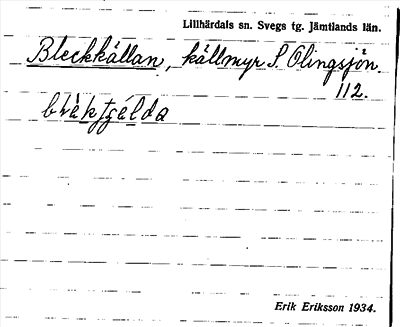 Lillhärdals sn. Svegs tg. Jämtlands län.
Bleckkällan, källmyr S. Olingsjön.
112.
Erik Eriksson 1934.